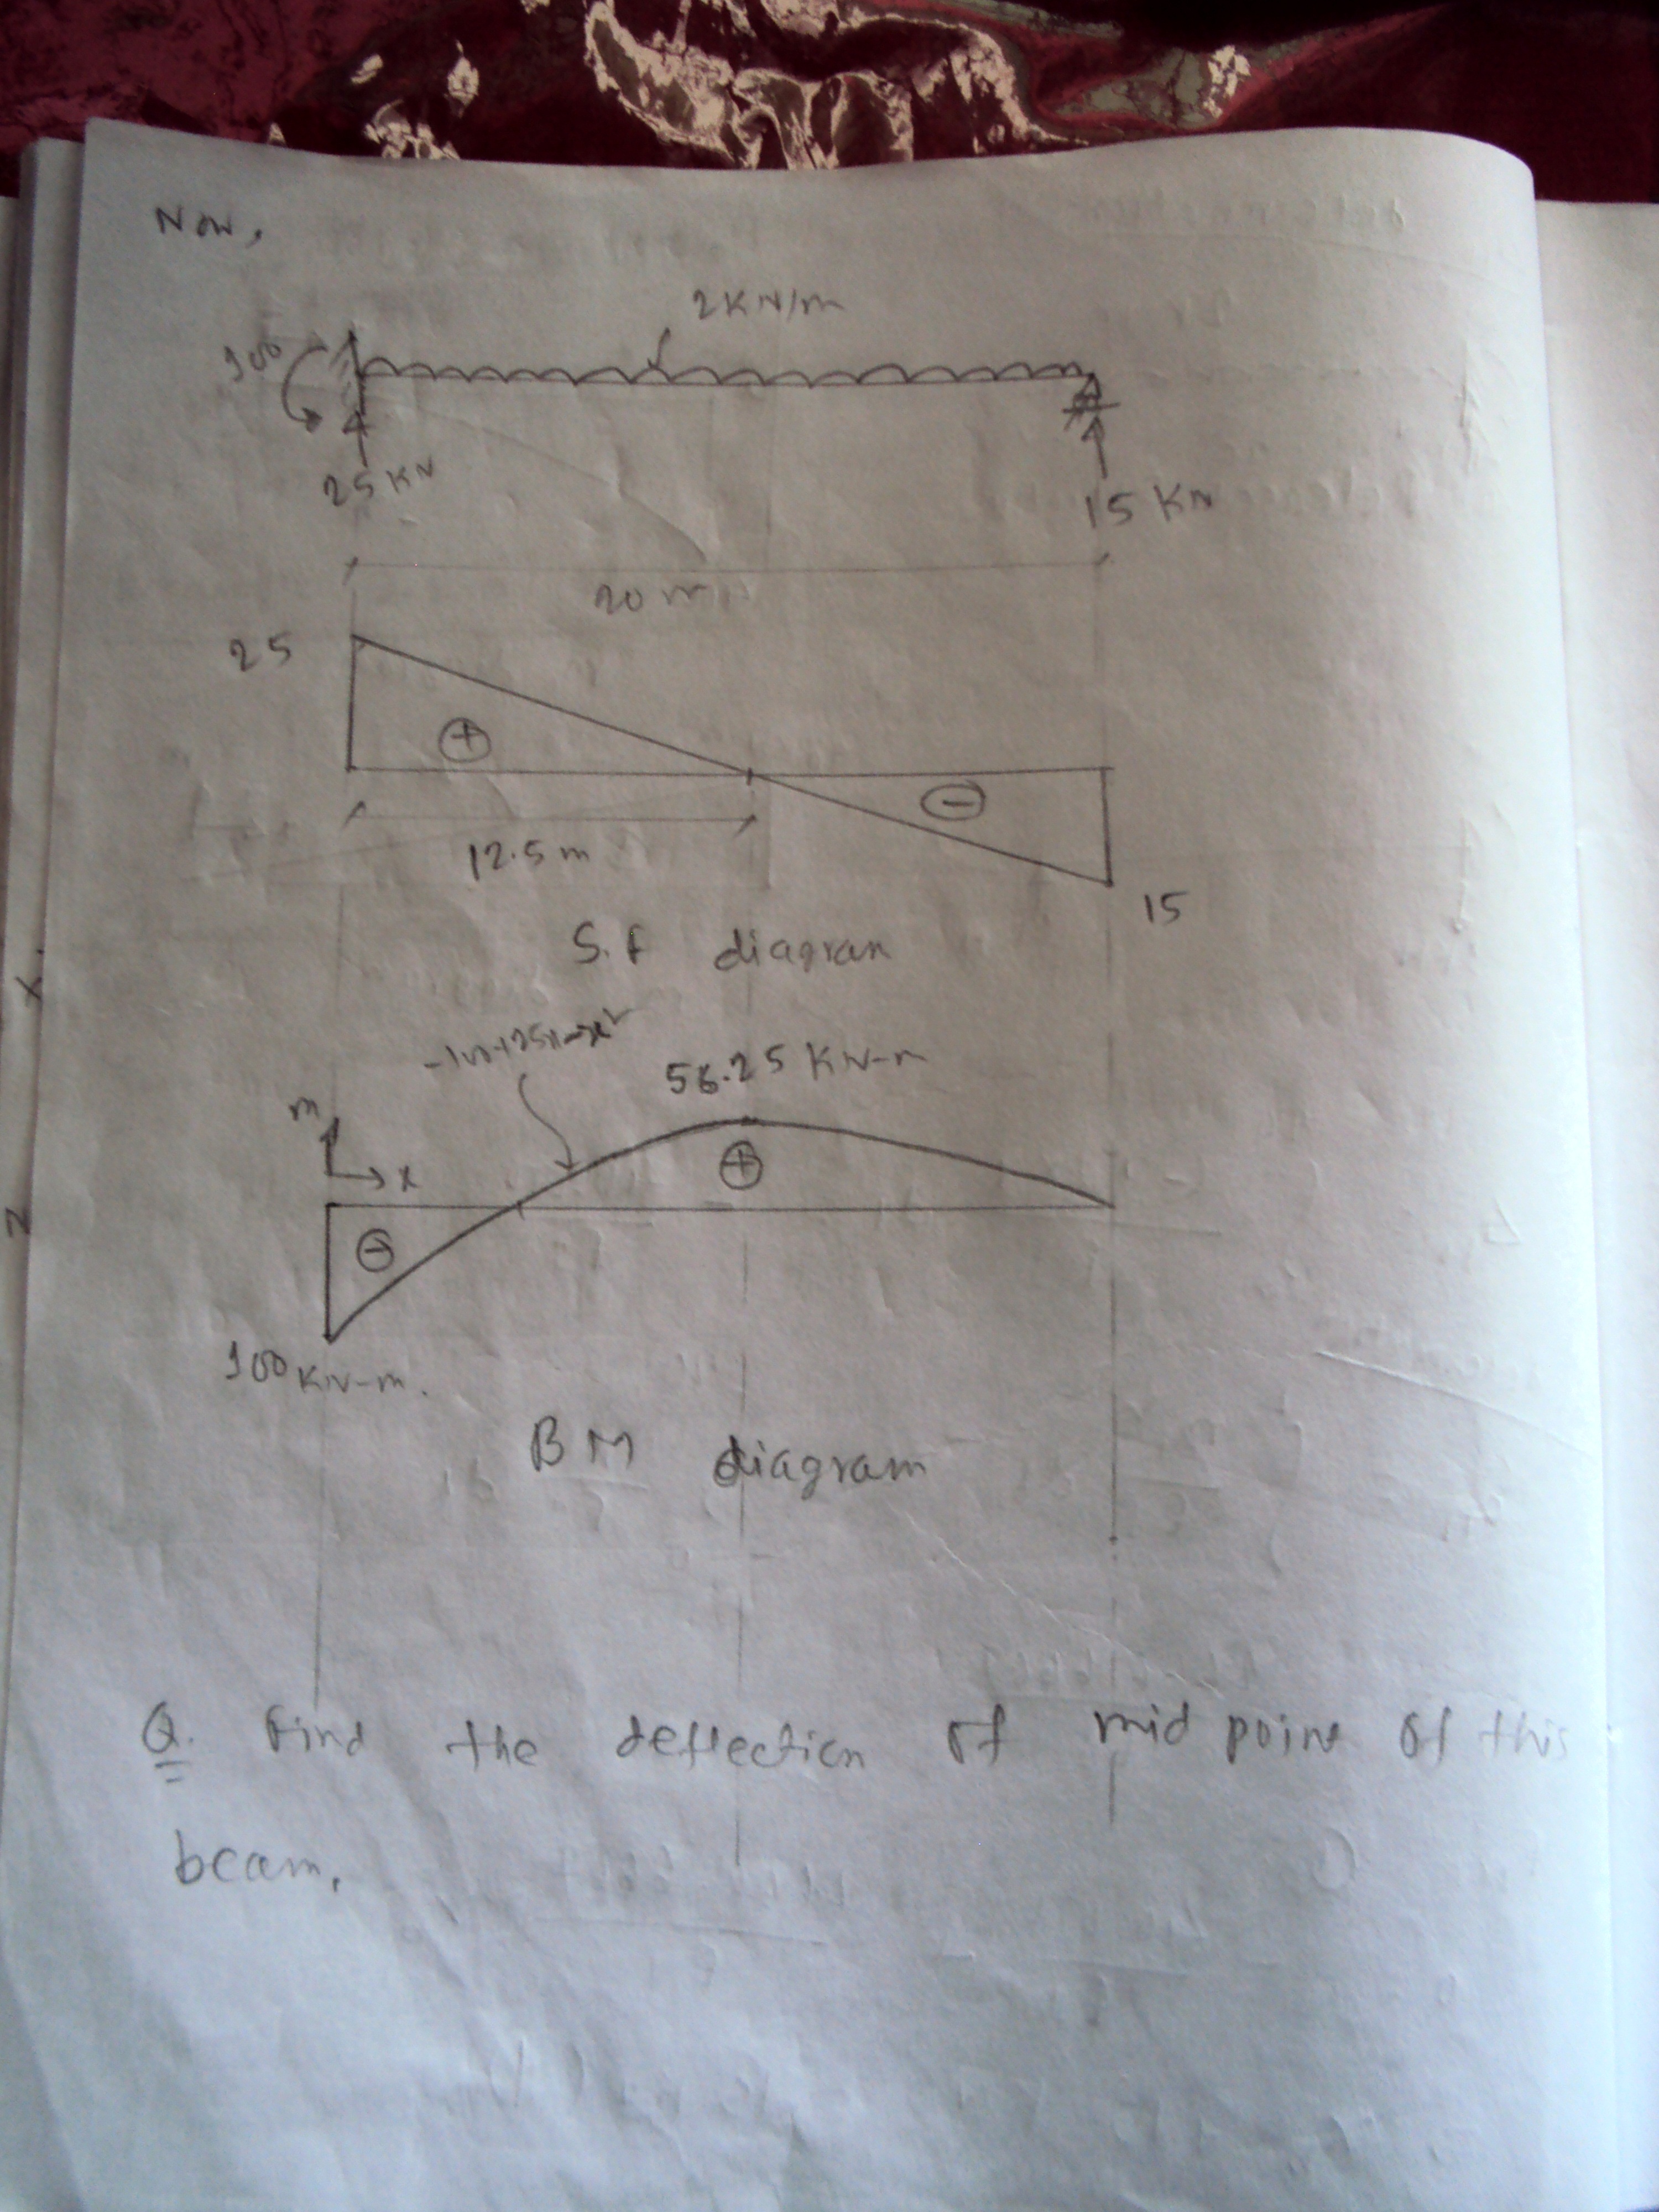 Now,
2KN/m
100
25 KN
15 KN
20 m
25
+
-
12.5 m
15
S.F diagram
-100+25x-x²
56.25 KN-m
m
x
+
-
100 KN-m.
BM diagram
Q. Find the deflection of mid point of this
beam.